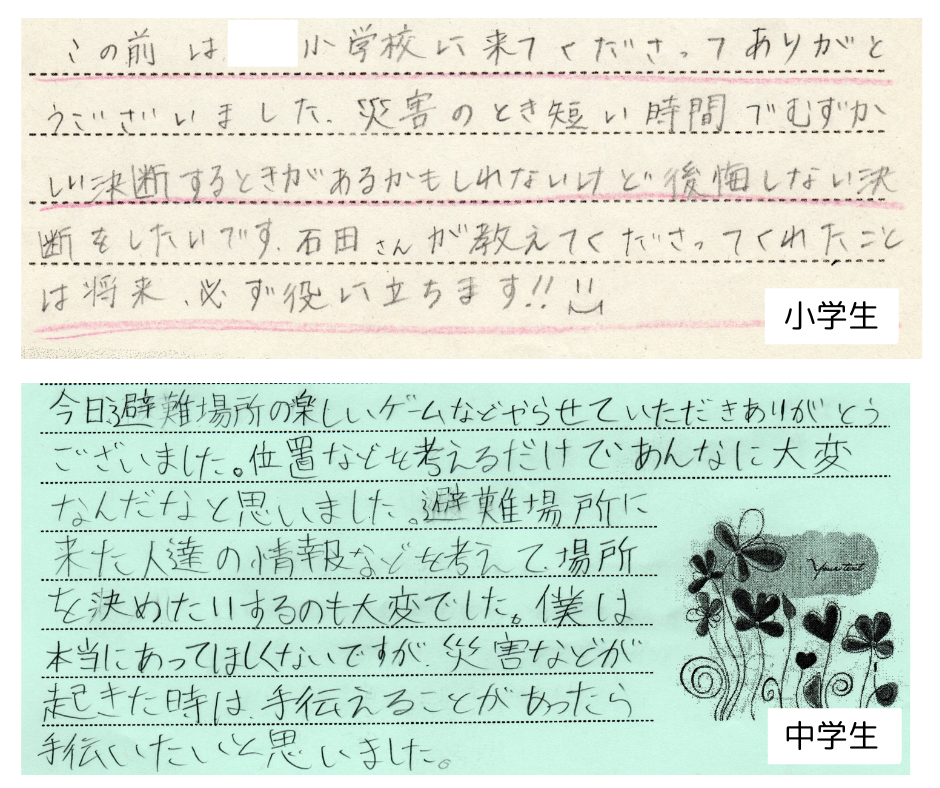 この前は 小学校に来てくださってありがと
うございました.災害のとき短い時間でむずか
しい決断するときがあるかもしれないけど後悔しない決
断をしたいです.石田さんが教えてくださってくれたこと
は将来、必ず役に立ちます!!
小学生
今日避難場所の楽しいゲームなどやらせていただきありがとう
ございました。位置などを考えるだけであんなに大変
なんだなと思いました。避難場所に
来た人達の情報などを考えて場所
を決めたいするのも大変でした。僕は
本当にあってほしくないですが、災害などが
起きた時は、手伝えることがあったら
手伝いたいと思いました。
Your text
中学生